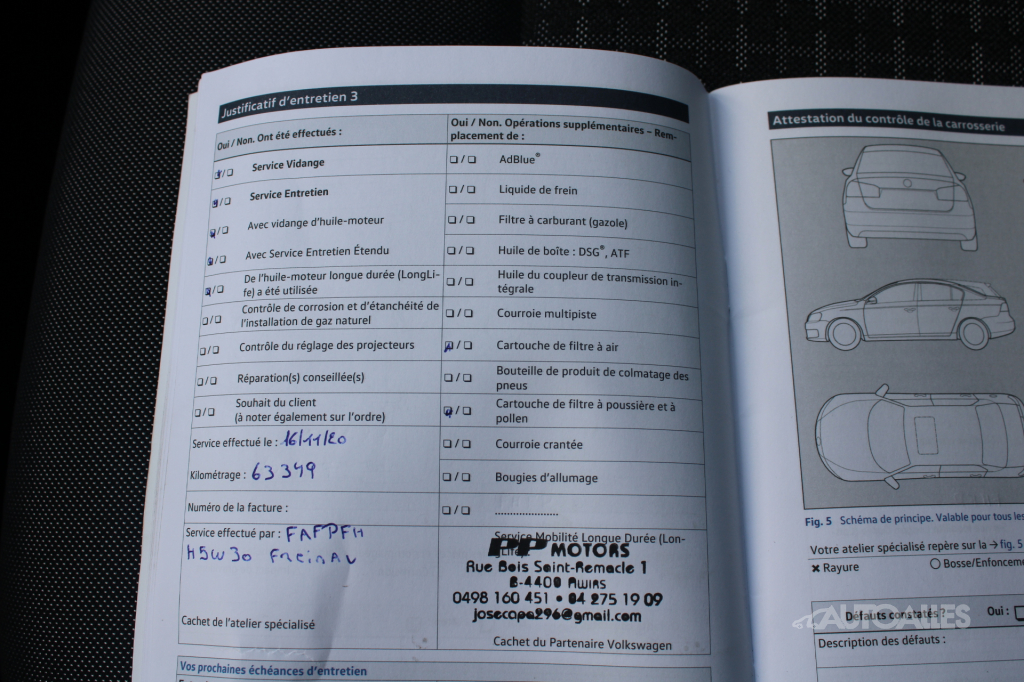 Justificatif d'entretien 3
Oui / Non. Ont été effectués :
❑/❑ Service Vidange
❑/❑ Service Entretien
❑/❑ Avec vidange d'huile-moteur
❑/❑ Avec Service Entretien Étendu
❑/❑ De l'huile-moteur longue durée (LongLi-
fe) a été utilisée
❑/❑ Contrôle de corrosion et d'étanchéité de
l'installation de gaz naturel
❑/❑ Contrôle du réglage des projecteurs
❑/❑ Réparation(s) conseillée(s)
❑/❑ Souhait du client
(à noter également sur l'ordre)
Service effectué le : 16/11/20
Kilométrage : 63349
Numéro de la facture :
Service effectué par : FAFPFH
H5W30 FreinAV
Cachet de l'atelier spécialisé
Oui / Non. Opérations supplémentaires – Rem-
placement de :
❑/❑ AdBlue®
❑/❑ Liquide de frein
❑/❑ Filtre à carburant (gazole)
❑/❑ Huile de boîte : DSG®, ATF
❑/❑ Huile du coupleur de transmission in-
tégrale
❑/❑ Courroie multipiste
❑/❑ Cartouche de filtre à air
❑/❑ Bouteille de produit de colmatage des
pneus
❑/❑ Cartouche de filtre à poussière et à
pollen
❑/❑ Courroie crantée
❑/❑ Bougies d'allumage
❑/❑ .....................
Service Mobilité Longue Durée (Lon-
PP MOTORS
Rue Bois Saint-Remacle 1
B-4400 AWIRS
0498 160 451 • 04 275 19 09
josecapa296@gmail.com
Cachet du Partenaire Volkswagen
Vos prochaines échéances d'entretien
Attestation du contrôle de la carrosserie
Fig. 5 Schéma de principe. Valable pour tous les
Votre atelier spécialisé repère sur la → fig. 5
✖ Rayure ○ Bosse/Enfonceme
Défauts constatés ? Oui : ❑
Description des défauts :
AUTOALLES